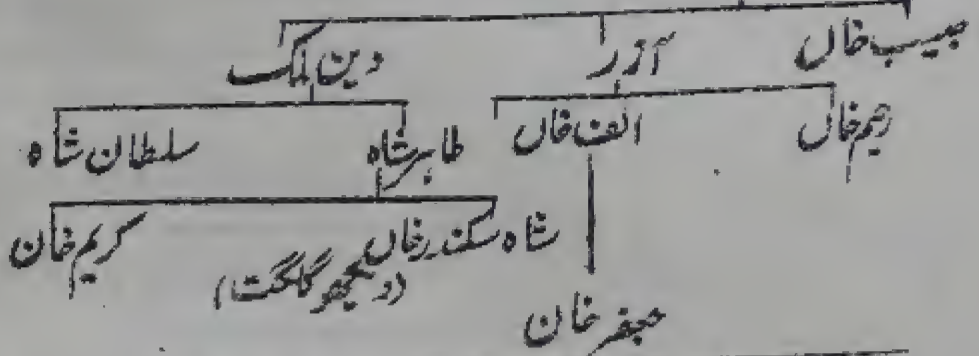 حبیب خاں آزر دین ملک
رحیم خاں الف خاں طاہر شاہ سلطان شاہ
شاہ سکندر خاں کریم خان
(دیکھو گلگت)
جعفر خان